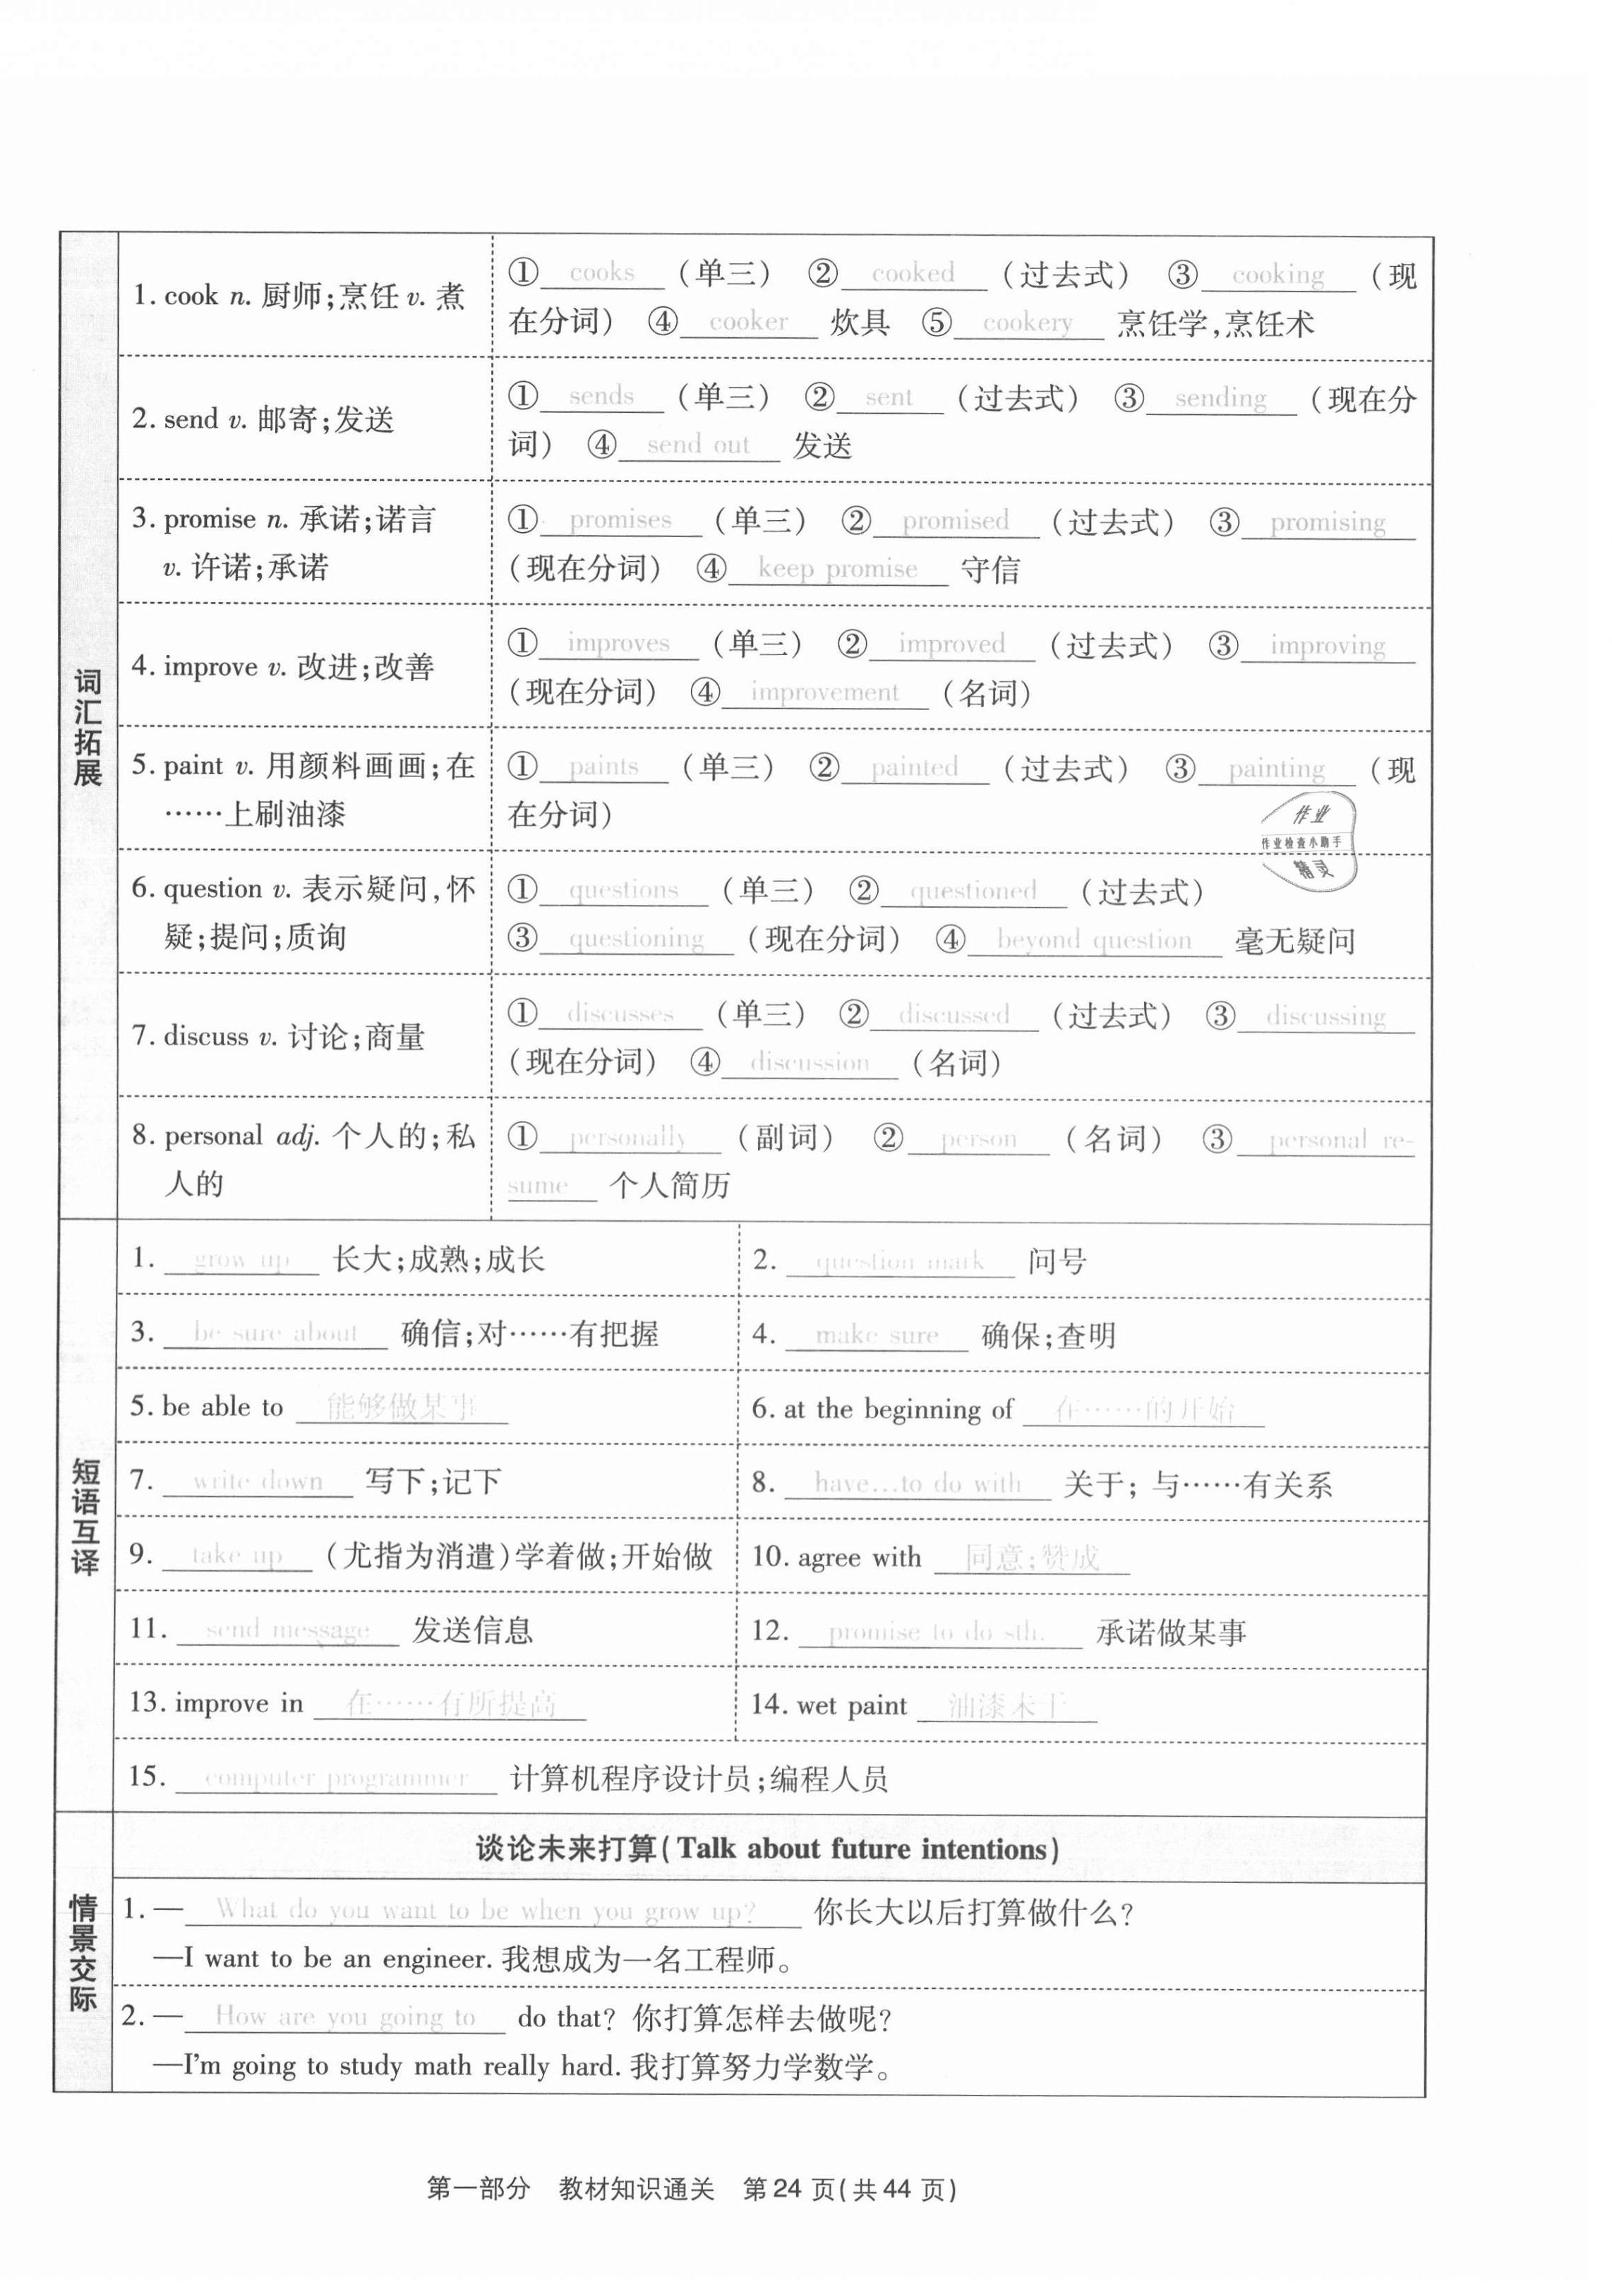 词汇拓展
1. cook n. 厨师;烹饪 v. 煮
① cooks (单三) ② cooked (过去式) ③ cooking (现
在分词) ④ cooker 炊具 ⑤ cookery 烹饪学,烹饪术
2. send v. 邮寄;发送
① sends (单三) ② sent (过去式) ③ sending (现在分
词) ④ send out 发送
3. promise n. 承诺;诺言
v. 许诺;承诺
① promises (单三) ② promised (过去式) ③ promising
(现在分词) ④ keep promise 守信
4. improve v. 改进;改善
① improves (单三) ② improved (过去式) ③ improving
(现在分词) ④ improvement (名词)
5. paint v. 用颜料画画;在
……上刷油漆
① paints (单三) ② painted (过去式) ③ painting (现
在分词)
作业
作业检查小助手
精灵
6. question v. 表示疑问,怀
疑;提问;质询
① questions (单三) ② questioned (过去式)
③ questioning (现在分词) ④ beyond question 毫无疑问
7. discuss v. 讨论;商量
① discusses (单三) ② discussed (过去式) ③ discussing
(现在分词) ④ discussion (名词)
8. personal adj. 个人的;私
人的
① personally (副词) ② person (名词) ③ personal re-
sume 个人简历
短语互译
1. grow up 长大;成熟;成长
2. question mark 问号
3. be sure about 确信;对……有把握
4. make sure 确保;查明
5. be able to 能够做某事
6. at the beginning of 在……的开始
7. write down 写下;记下
8. have…to do with 关于; 与……有关系
9. take up (尤指为消遣)学着做;开始做
10. agree with 同意;赞成
11. send message 发送信息
12. promise to do sth. 承诺做某事
13. improve in 在……有所提高
14. wet paint 油漆未干
15. computer programmer 计算机程序设计员;编程人员
情景交际
谈论未来打算(Talk about future intentions)
1. — What do you want to be when you grow up? 你长大以后打算做什么?
—I want to be an engineer. 我想成为一名工程师。
2. — How are you going to do that? 你打算怎样去做呢?
—I'm going to study math really hard. 我打算努力学数学。
第一部分 教材知识通关 第 24 页(共 44 页)